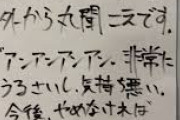 外から丸聞こえです。
"アンアンアンアン。非常に
うるさいし、気持ち悪い。
今後、やめなければ